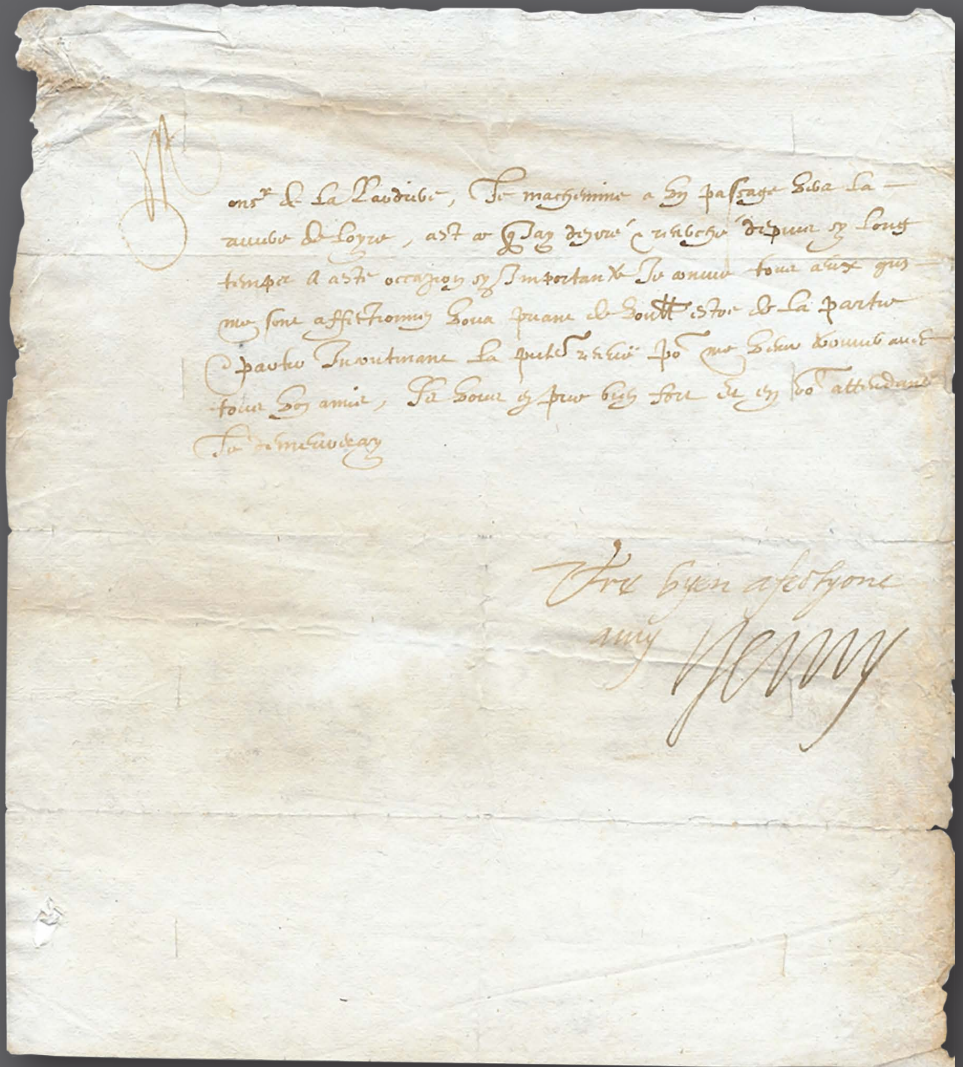 Monsr de la Lardiere, Je machemine a un passage vers la
riviere de loyre, cest ce q Jay desiré & recherché depuis sy long
temps A ceste occazion sy Importante Je convie tous ceux quy
me sont affectionnez vous priant de voulloir estre de la partie
& partir Incontinant la pnte receue por me venir trouver avec
tous voz amis, Je vous en prie bien fort et en vo attendant
Je demeureray
Vre byen afectyoné
amy Henry